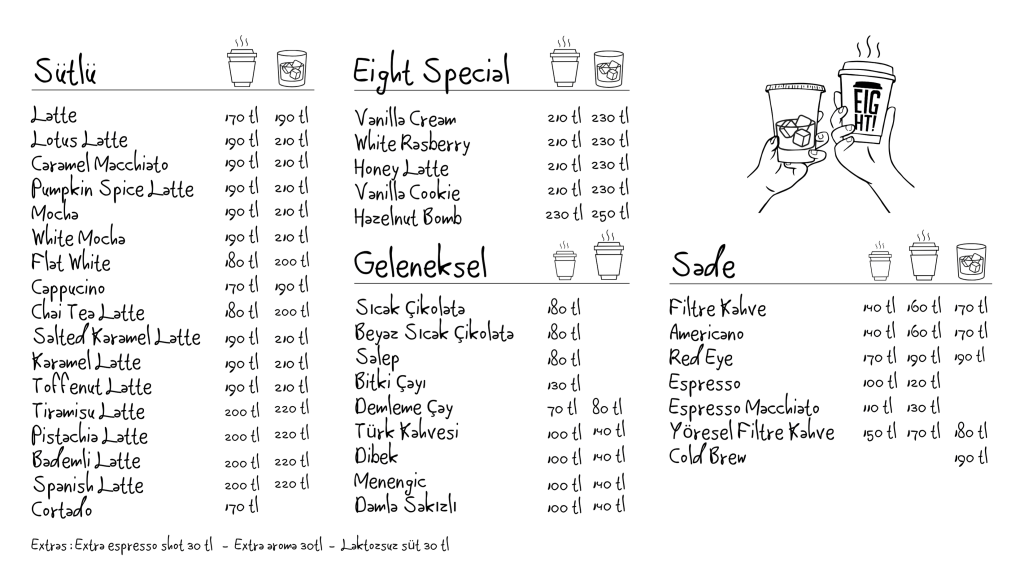 Sütlü
Latte 170 tl 190 tl
Lotus Latte 190 tl 210 tl
Caramel Macchiato 190 tl 210 tl
Pumpkin Spice Latte 190 tl 210 tl
Mocha 190 tl 210 tl
White Mocha 190 tl 210 tl
Flat White 180 tl 200 tl
Cappucino 170 tl 190 tl
Chai Tea Latte 180 tl 200 tl
Salted Karamel Latte 190 tl 210 tl
Karamel Latte 190 tl 210 tl
Toffenut Latte 190 tl 210 tl
Tiramisu Latte 200 tl 220 tl
Pistachia Latte 200 tl 220 tl
Bademli Latte 200 tl 220 tl
Spanish Latte 200 tl 220 tl
Cortado 170 tl
Extras : Extra espresso shot 30 tl - Extra aroma 30tl - Laktozsuz süt 30 tl
Eight Special
Vanilla Cream 210 tl 230 tl
White Rasberry 210 tl 230 tl
Honey Latte 210 tl 230 tl
Vanilla Cookie 210 tl 230 tl
Hazelnut Bomb 230 tl 250 tl
Geleneksel
Sıcak Çikolata 180 tl
Beyaz Sıcak Çikolata 180 tl
Salep 180 tl
Bitki Çayı 130 tl
Demleme Çay 70 tl 80 tl
Türk Kahvesi 100 tl 140 tl
Dibek 100 tl 140 tl
Menengic 100 tl 140 tl
Damla Sakızlı 100 tl 140 tl
EIG
HT!
Sade
Filtre Kahve 140 tl 160 tl 170 tl
Americano 140 tl 160 tl 170 tl
Red Eye 170 tl 190 tl 190 tl
Espresso 100 tl 120 tl
Espresso Macchiato 110 tl 130 tl
Yöresel Filtre Kahve 150 tl 170 tl 180 tl
Cold Brew 190 tl